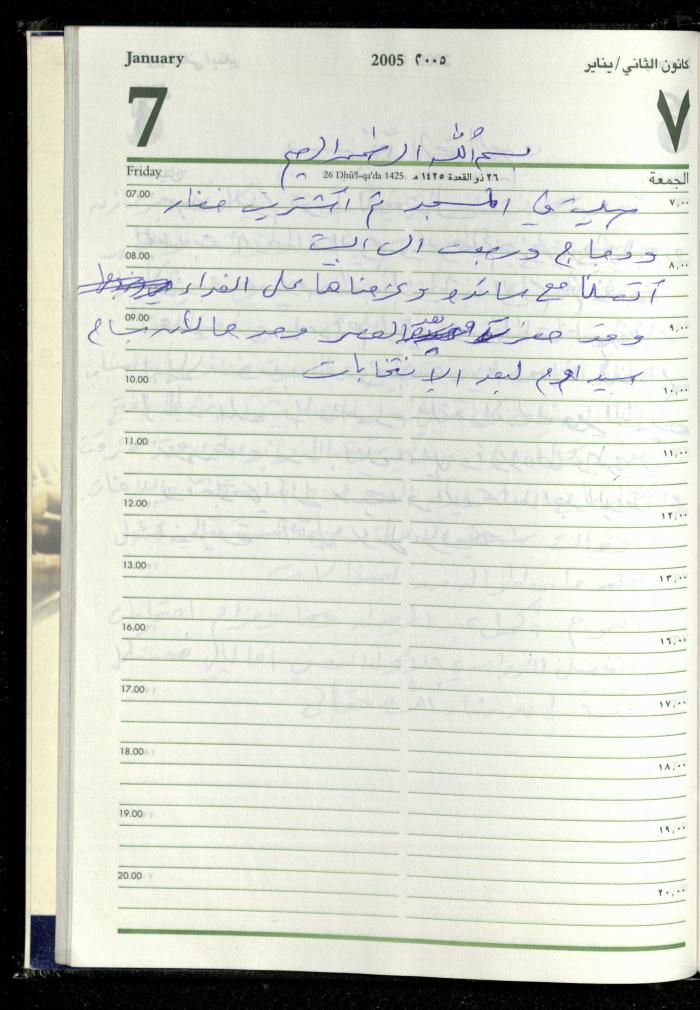 January 2005 ٢٠٠٥ كانون الثاني/يناير
7 ٧
بسم الله الرحمن الرحيم
Friday 26 Dhû'l-qa'da 1425 ٢٦ ذو القعدة ١٤٢٥ هـ الجمعة
07.00 ٧,٠٠
صليت في المسجد ثم اشتريت خضار
ودجاج ورجعت الى البيت
08.00 ٨,٠٠
اتصلنا مع ساندرو وعزمناها على الغداء
09.00 ٩,٠٠
وقد حضرت بعد العصر وحدها لأن
سيد لبعد الإنتخابات
10.00 ١٠,٠٠
11.00 ١١,٠٠
12.00 ١٢,٠٠
13.00 ١٣,٠٠
16.00 ١٦,٠٠
17.00 ١٧,٠٠
18.00 ١٨,٠٠
19.00 ١٩,٠٠
20.00 ٢٠,٠٠